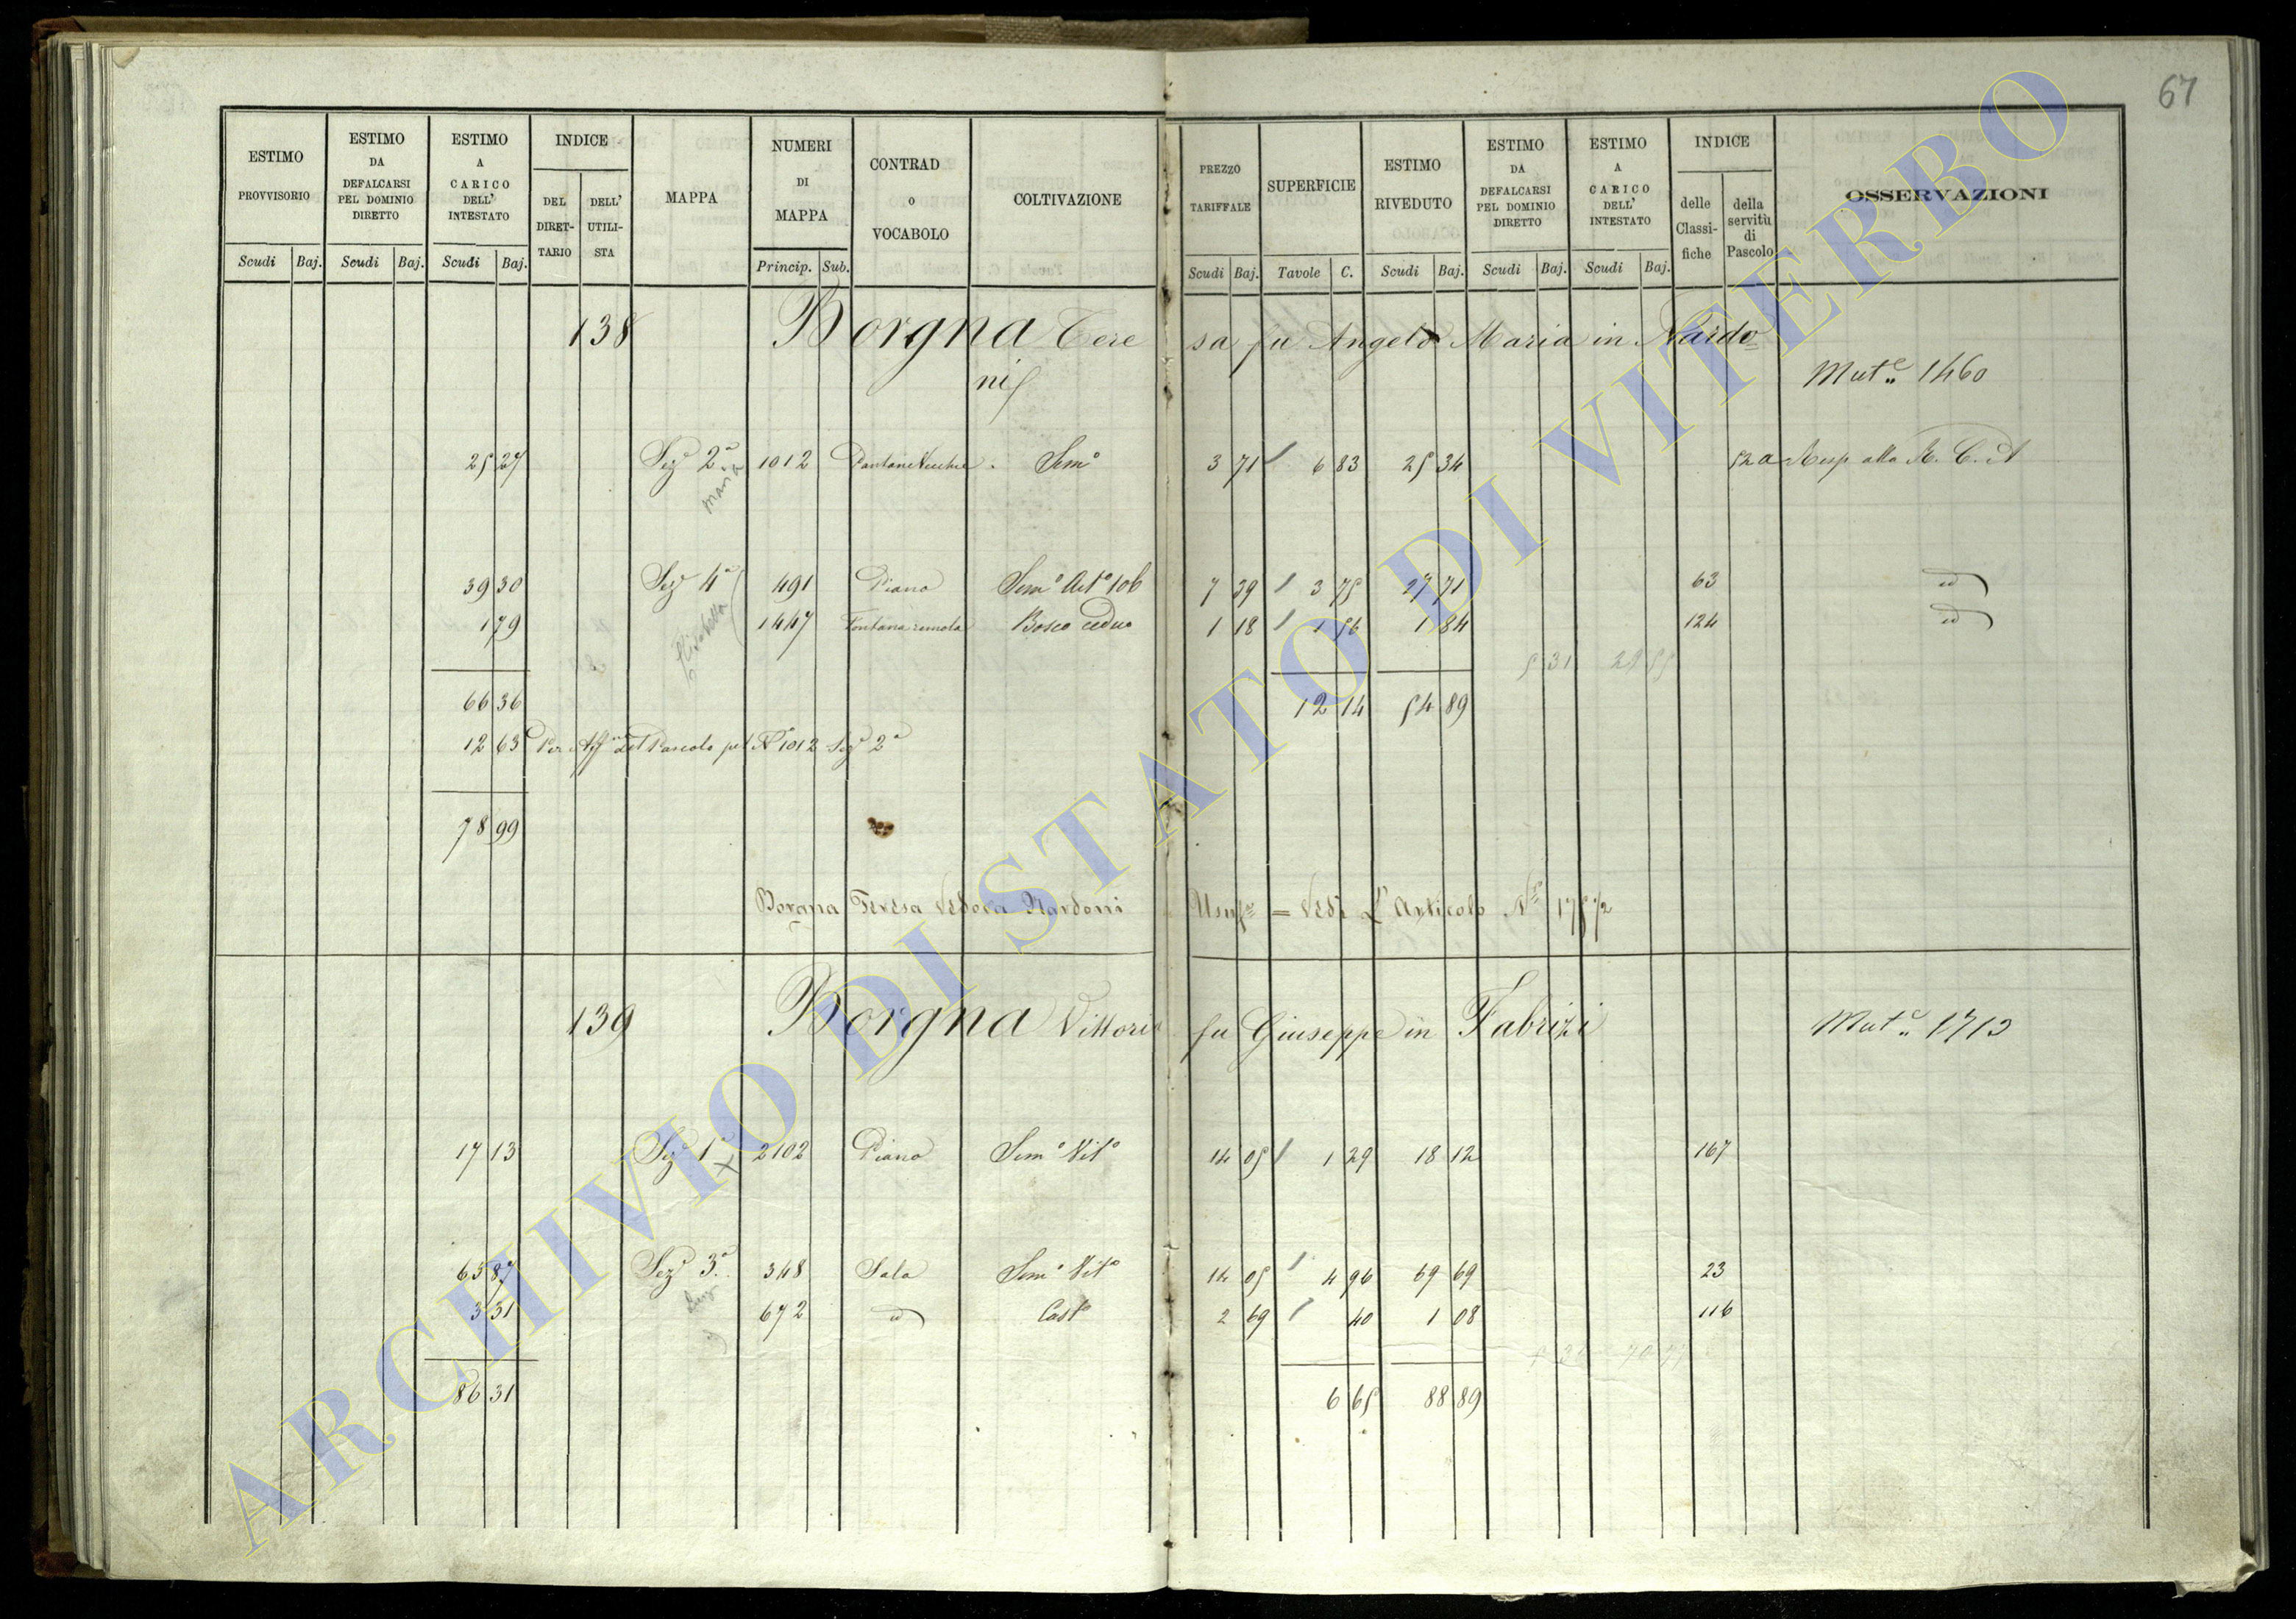 67
ESTIMO PROVVISORIO
ESTIMO DA DEFALCARSI PEL DOMINIO DIRETTO
ESTIMO A CARICO DELL' INTESTATO
INDICE
DEL DIRET-TARIO
DELL' UTILI-STA
MAPPA
NUMERI DI MAPPA
CONTRAD O VOCABOLO
COLTIVAZIONE
PREZZO TARIFFALE
SUPERFICIE
ESTIMO RIVEDUTO
ESTIMO DA DEFALCARSI PEL DOMINIO DIRETTO
ESTIMO A CARICO DELL' INTESTATO
INDICE
delle Classi-fiche
della servitù di Pascolo
OSSERVAZIONI
Scudi Baj. Scudi Baj. Scudi Baj. Princip. Sub. Scudi Baj. Tavole C. Scudi Baj. Scudi Baj. Scudi Baj.
138 Borgna Tere sa fu Angelo Maria in Nardo=
ni
Mut.e 1460
25 27 Sez.e 2a 1012 Pantane Vecchie Sem.o 3 71 6 83 25 34 52a Resp alla R. C. A
Maria
39 30 Sez.e 4a 491 Piano Sem.o Art.o 106 7 39 3 75 27 71 63 id
1 79 1447 Fontana remola Bosco ceduo 1 18 1 56 1 84 124 id
Elisabella
5 31 29 55
66 36 12 14 54 89
12 63 Per Aff.ne del Pascolo pel No 1012 Sez.e 2a
78 99
Borgna Teresa Vedova Nardoni Usuf.ria = Vedi L'Articolo No 1572
139 Borgna Vittoria fu Giuseppe in Fabrizi Mut.e 1713
17 13 Sez.e 1a 2102 Piano Sem.o Vit.o 14 05 1 29 18 12 167
65 87 Sez.e 3a 348 Sala Sem.o Vit.o 14 05 4 96 69 69 23
3 31 672 id Cast.o 2 69 40 1 08 116
86 31 6 65 88 89
ARCHIVIO DI STATO DI VITERBO